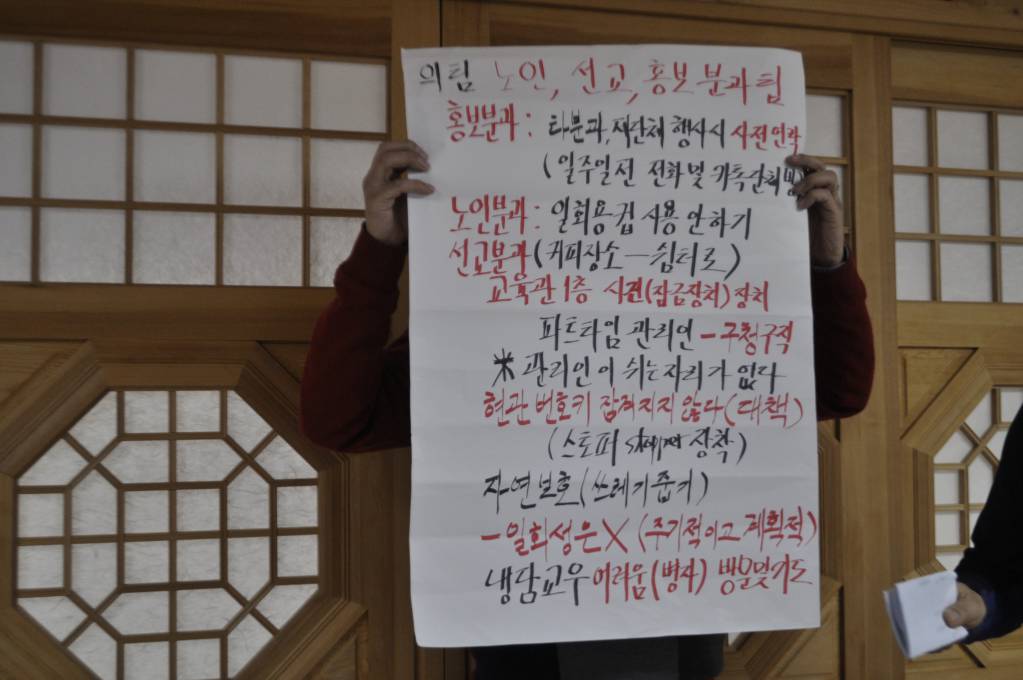 의팀 노인, 선교, 홍보분과팀
홍보분과 : 타분과, 제단체 행사시 사전연락
(일주일전 전화및 가톡단체방
노인분과 : 일회용컵 사용 안하기
선교분과 (커피장소-쉼터로)
교육관 1층 시건(잠금장치) 장치
파트타임 관리인 - 구청구직
* 관리인이 쉬는 자리가 없다
현관 번호키 잠겨지지 않다 (대책)
(스토퍼 장착)
자연보호 (쓰레기줍기)
- 일회성은 X (주기적이고 계획적)
냉담교우 어려움(병자) 방문및기도